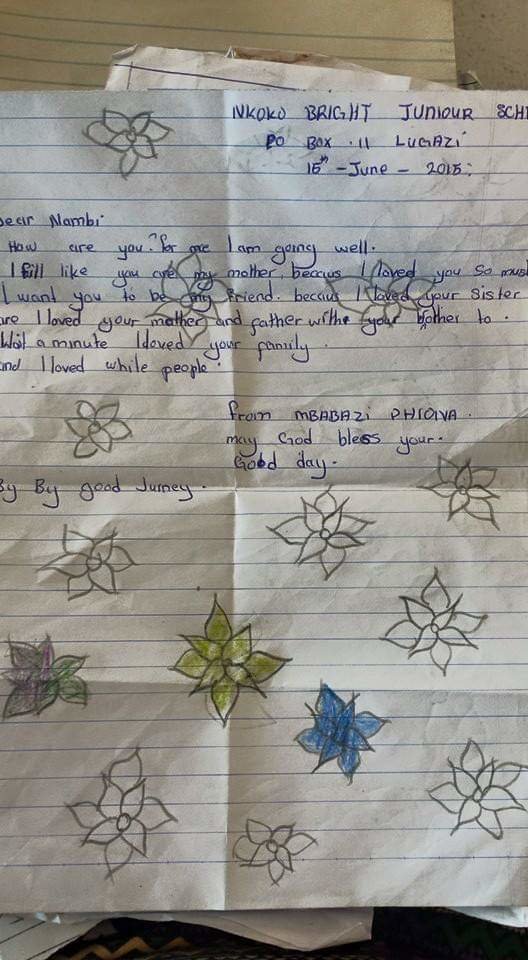 NKOKO BRIGHT JUNIOUR SCH
PO BOX . 11 LUGAZI
15th - June - 2015:
ear Nambi
How are you? for me I am going well.
I fill like you are my mother beccius I loved you so mus
I want you to be my friend. beccius I loved your Sister
are I loved your mother and father withe your bother to .
Wat a minute I loved your family .
nd I loved while people .
from MBABAZI
may God bless your .
Good day .
By By good Jurney .